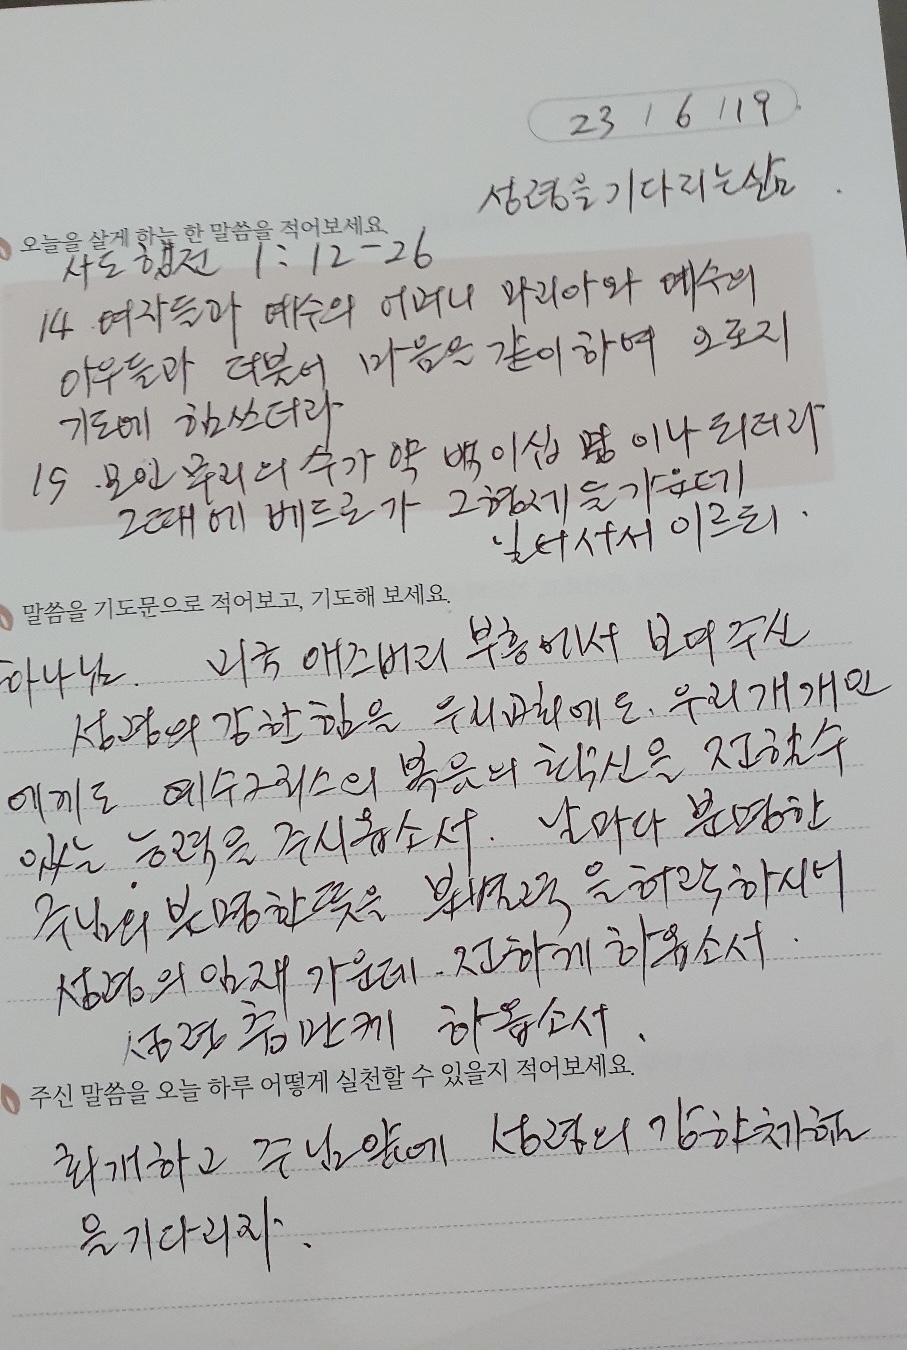 23 / 6 / 19
성령을 기다리는 삶
오늘을 살게 하는 한 말씀을 적어보세요.
사도행전 1:12-26
14 여자들과 예수의 어머니 마리아와 예수의
아우들과 더불어 마음을 같이하여 오로지
기도에 힘쓰더라
15 모인 무리의 수가 약 백이십 명이나 되더라
그때에 베드로가 그 형제들 가운데
일어서서 이르되.
말씀을 기도문으로 적어보고, 기도해 보세요.
하나님. 미국 애즈버리 부흥에서 보여주신
성령의 강한 힘을 우리교회에도. 우리 개개인
에게도 예수그리스의 복음의 확신을 전할수
있는 능력을 주시옵소서. 날마다 분명한
주님의 분명한 뜻을 분별력을 허락하시어
성령의 임재 가운데. 전하게 하옵소서.
성령 충만케 하옵소서.
주신 말씀을 오늘 하루 어떻게 실천할 수 있을지 적어보세요.
회개하고 주님앞에 성령의 강한체험
을 기다리자.